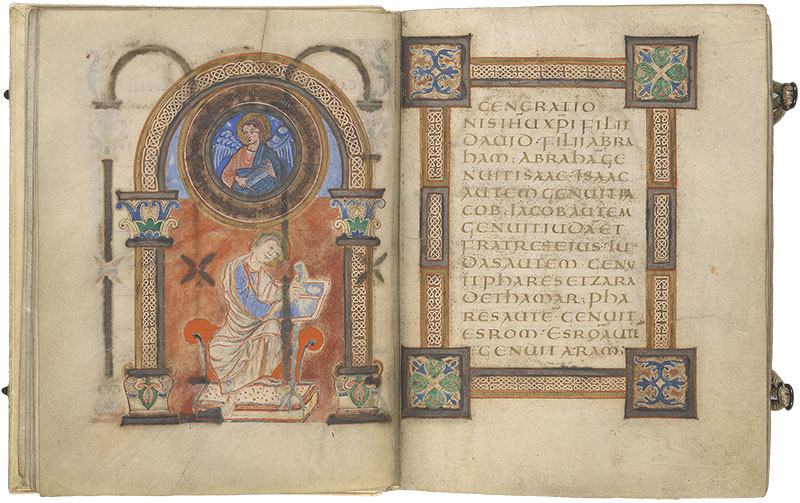 GENERATIO
NIS IHU XPI FILII
DAVID · FILII ABRA
HAM; ABRAHA GE
NUIT ISAAC · ISAAC
AUTEM GENUIT IA
COB · IACOB AUTEM
GENUIT IUDA ET
FRATRES EIUS · IU
DAS AUTEM GENU
IT PHARES ET ZARA
DE THAMAR; PHA
RES AUTE GENUIT
ESROM · ESRO AUTE
GENUIT ARAM;